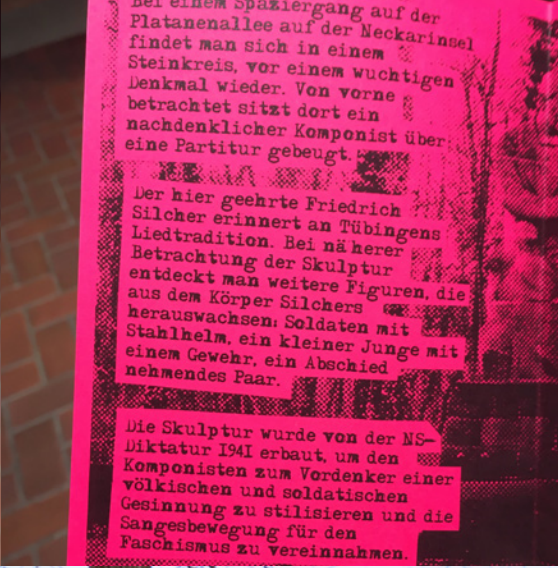 Bei einem Spaziergang auf der
Platanenallee auf der Neckarinsel
findet man sich in einem
Steinkreis, vor einem wuchtigen
Denkmal wieder. Von vorne
betrachtet sitzt dort ein
nachdenklicher Komponist über
eine Partitur gebeugt.
Der hier geehrte Friedrich
Silcher erinnert an Tübingens
Liedtradition. Bei näherer
Betrachtung der Skulptur
entdeckt man weitere Figuren, die
aus dem Körper Silchers
herauswachsen: Soldaten mit
Stahlhelm, ein kleiner Junge mit
einem Gewehr, ein Abschied
nehmendes Paar.
Die Skulptur wurde von der NS-
Diktatur 1941 erbaut, um den
Komponisten zum Vordenker einer
völkischen und soldatischen
Gesinnung zu stilisieren und die
Sangesbewegung für den
Faschismus zu vereinnahmen.